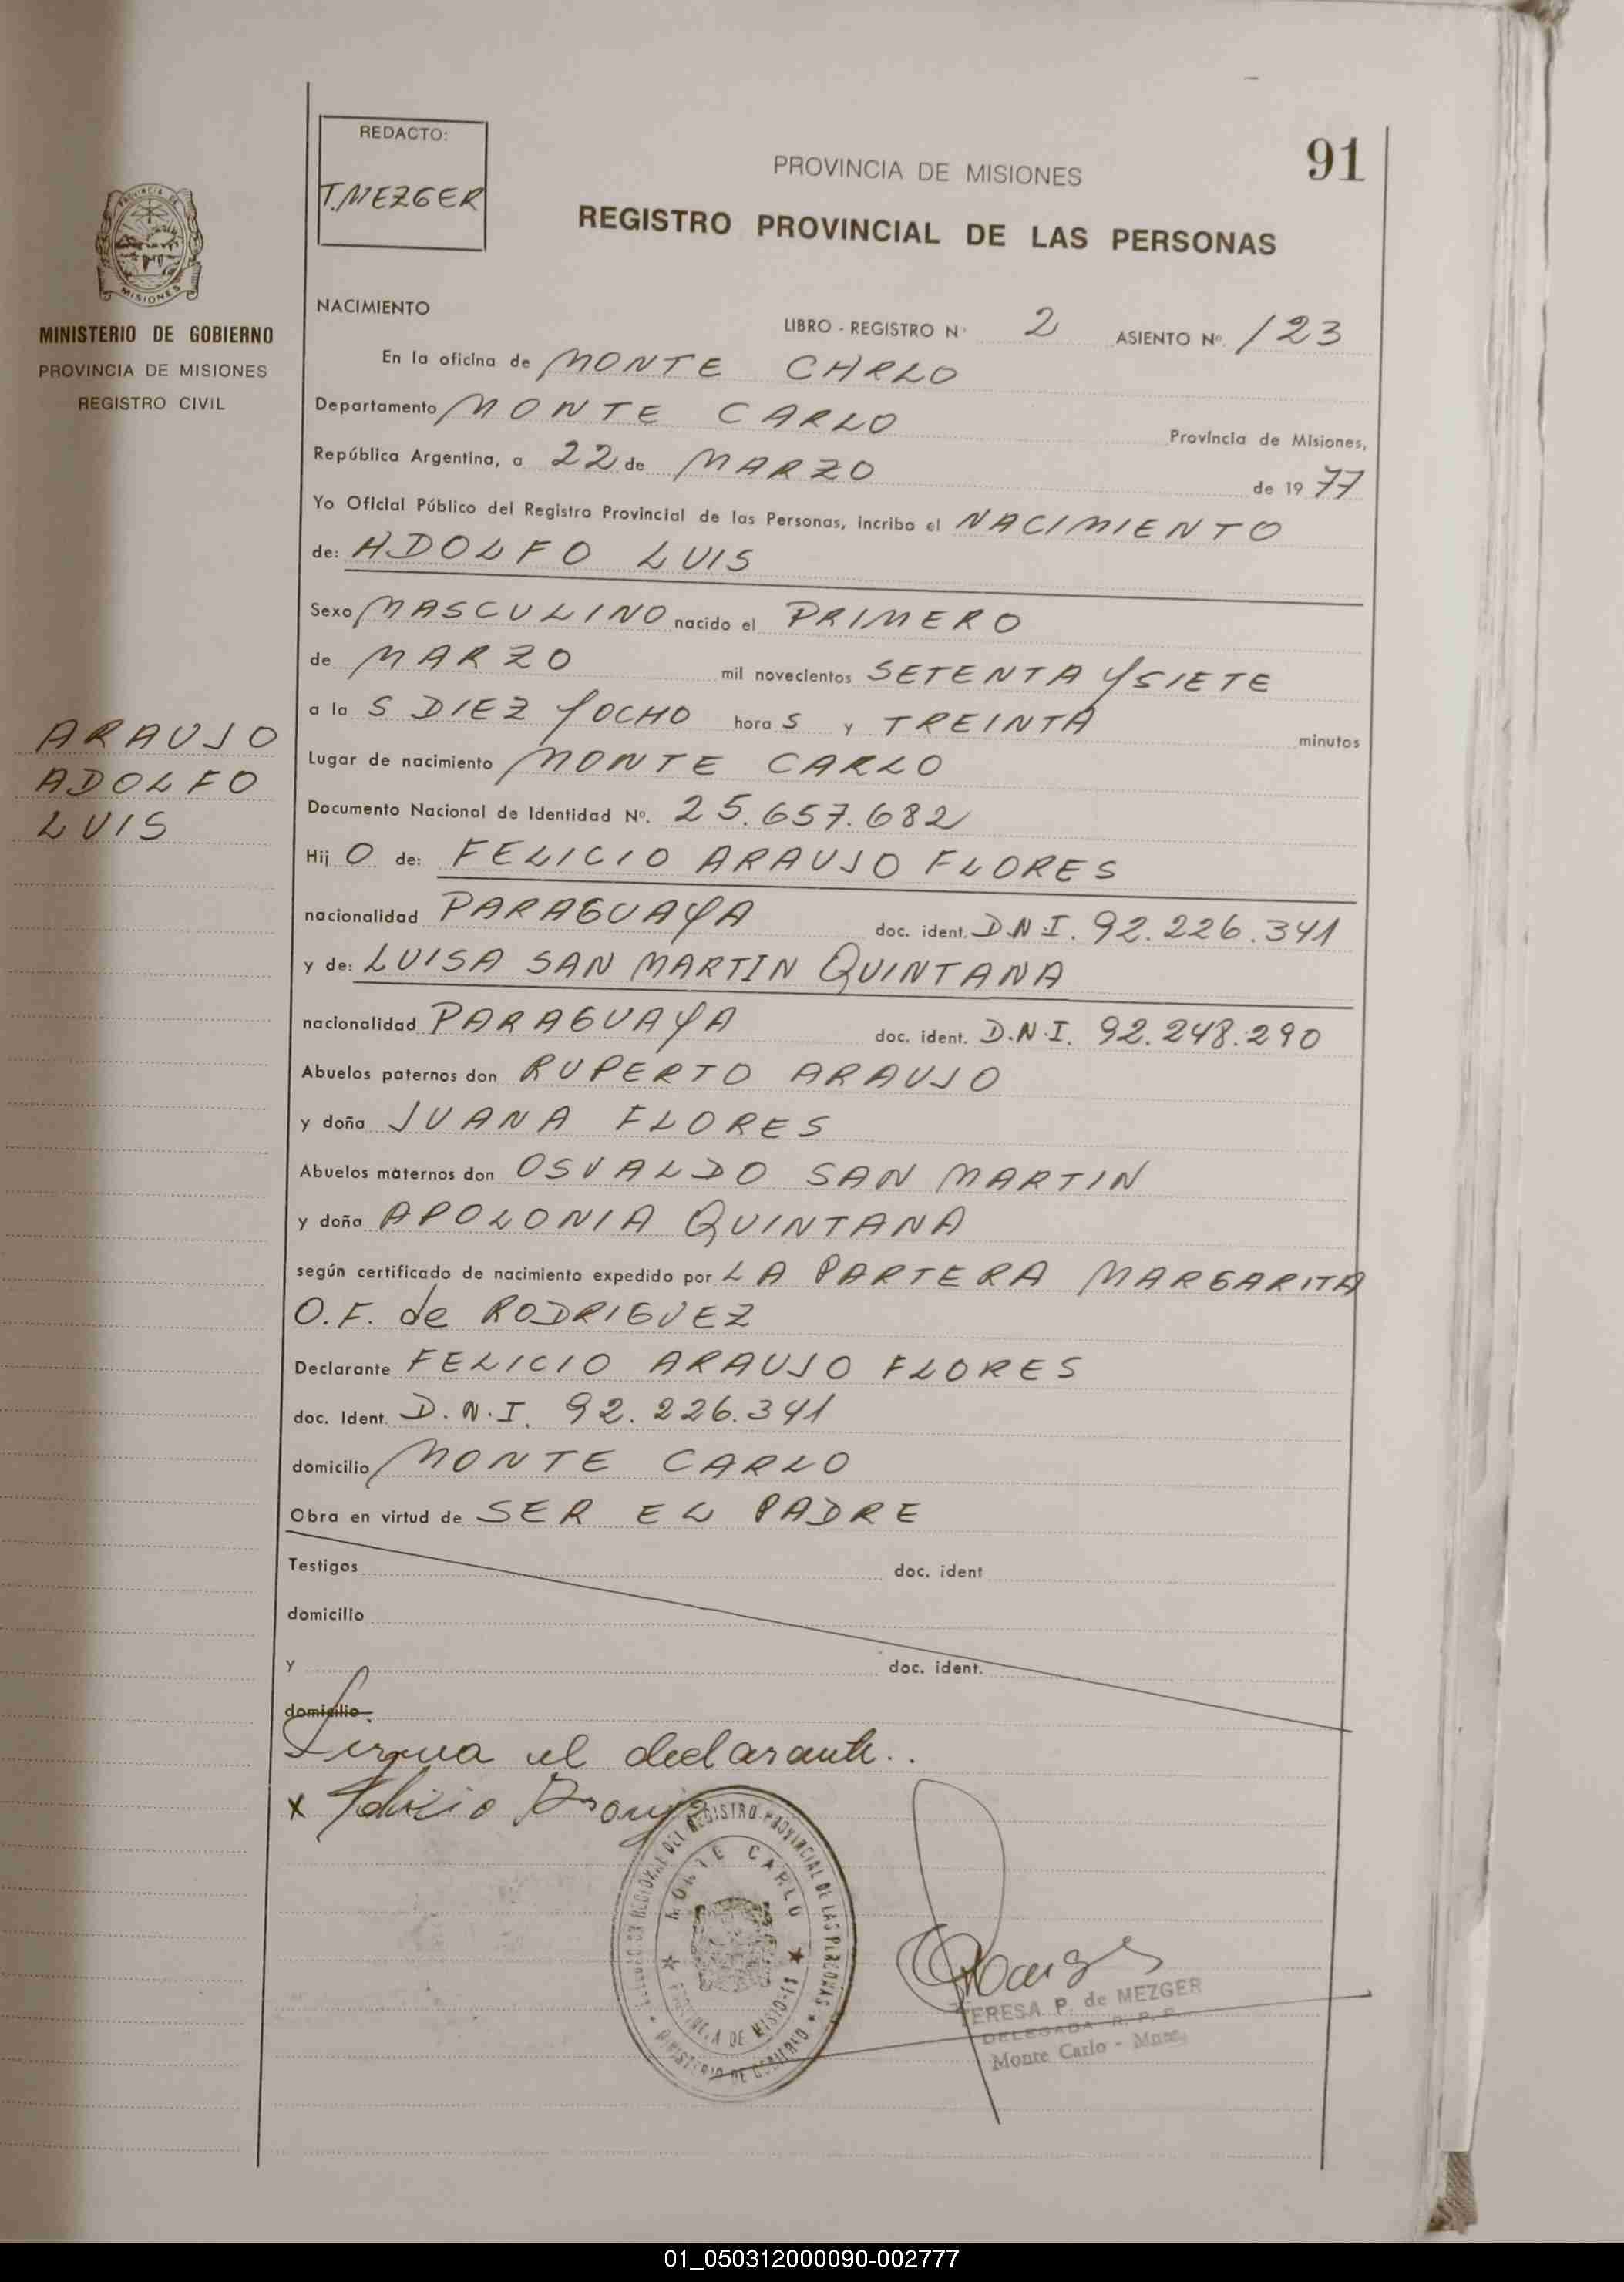 91
REDACTO:
T. MEZGER
PROVINCIA DE MISIONES
REGISTRO PROVINCIAL DE LAS PERSONAS
PROVINCIA DE
MISIONES
MINISTERIO DE GOBIERNO
PROVINCIA DE MISIONES
REGISTRO CIVIL
NACIMIENTO
LIBRO - REGISTRO Nº 2 ASIENTO Nº. 123
En la oficina de MONTE CARLO
Departamento MONTE CARLO Provincia de Misiones,
República Argentina, a 22 de MARZO de 1977
Yo Oficial Público del Registro Provincial de las Personas, incribo el NACIMIENTO
de: ADOLFO LUIS
Sexo MASCULINO nacido el PRIMERO
de MARZO mil novecientos SETENTA Y SIETE
a la S DIEZ Y OCHO hora S y TREINTA minutos
ARAUJO
ADOLFO
LUIS
Lugar de nacimiento MONTE CARLO
Documento Nacional de Identidad Nº. 25.657.682
Hij O de: FELICIO ARAUJO FLORES
nacionalidad PARAGUAYA doc. ident. D.N.I. 92.226.341
y de: LUISA SAN MARTIN QUINTANA
nacionalidad PARAGUAYA doc. ident. D.N.I. 92.248.290
Abuelos paternos don RUPERTO ARAUJO
y doña JUANA FLORES
Abuelos maternos don OSVALDO SAN MARTIN
y doña APOLONIA QUINTANA
según certificado de nacimiento expedido por LA PARTERA MARGARITA
O.F. de RODRIGUEZ
Declarante FELICIO ARAUJO FLORES
doc. Ident. D.N.I. 92.226.341
domicilio MONTE CARLO
Obra en virtud de SER EL PADRE
Testigos doc. ident
domicilio
y doc. ident.
domicilio
Firma el declarante..
x Felicio Araujo
DELEGACION REGIONAL DEL REGISTRO PROVINCIAL DE LAS PERSONAS
MONTE CARLO
PROVINCIA DE MISIONES
MINISTERIO DE GOBIERNO
TERESA P. de MEZGER
DELEGADA R. P. P.
Monte Carlo - Mnes.
01_050312000090-002777